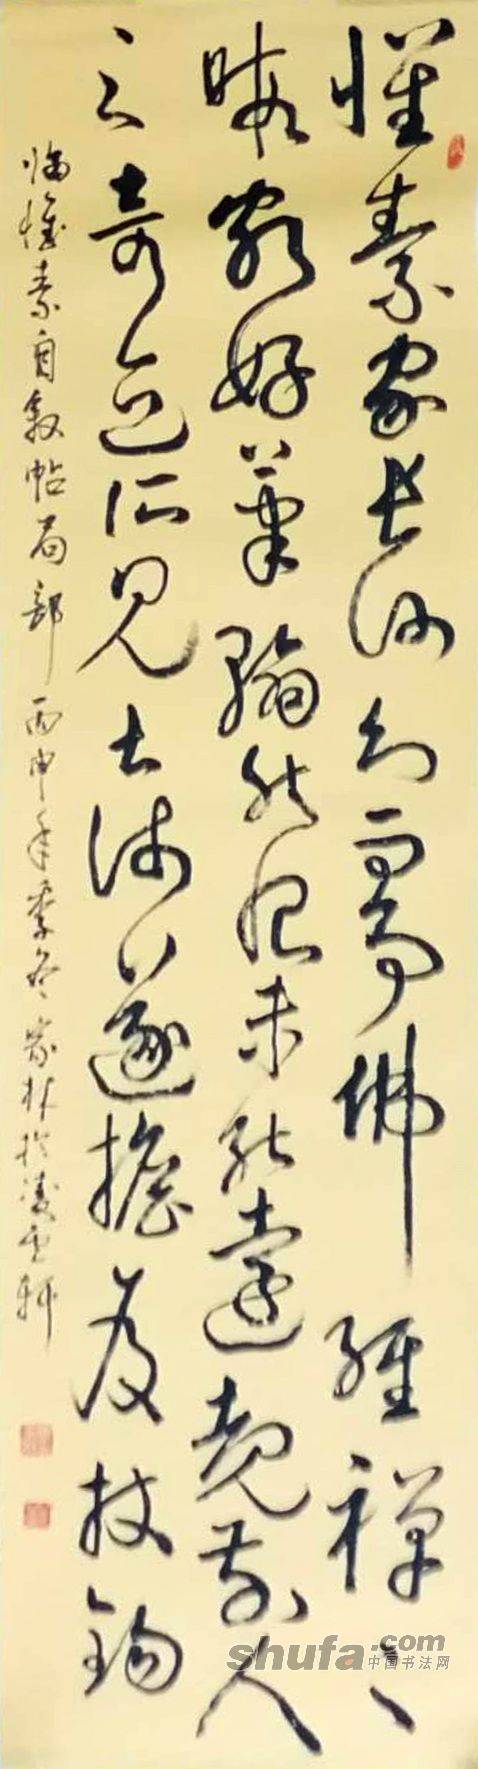 懷素家長沙幼而事佛經禪之
暇頗好筆翰然恨未能遠覩前人
之奇迹所見甚淺遂擔笈杖錫
臨懷素自敘帖局部 丙申年季冬 家林於凌雲軒
shufa.com
中国书法网